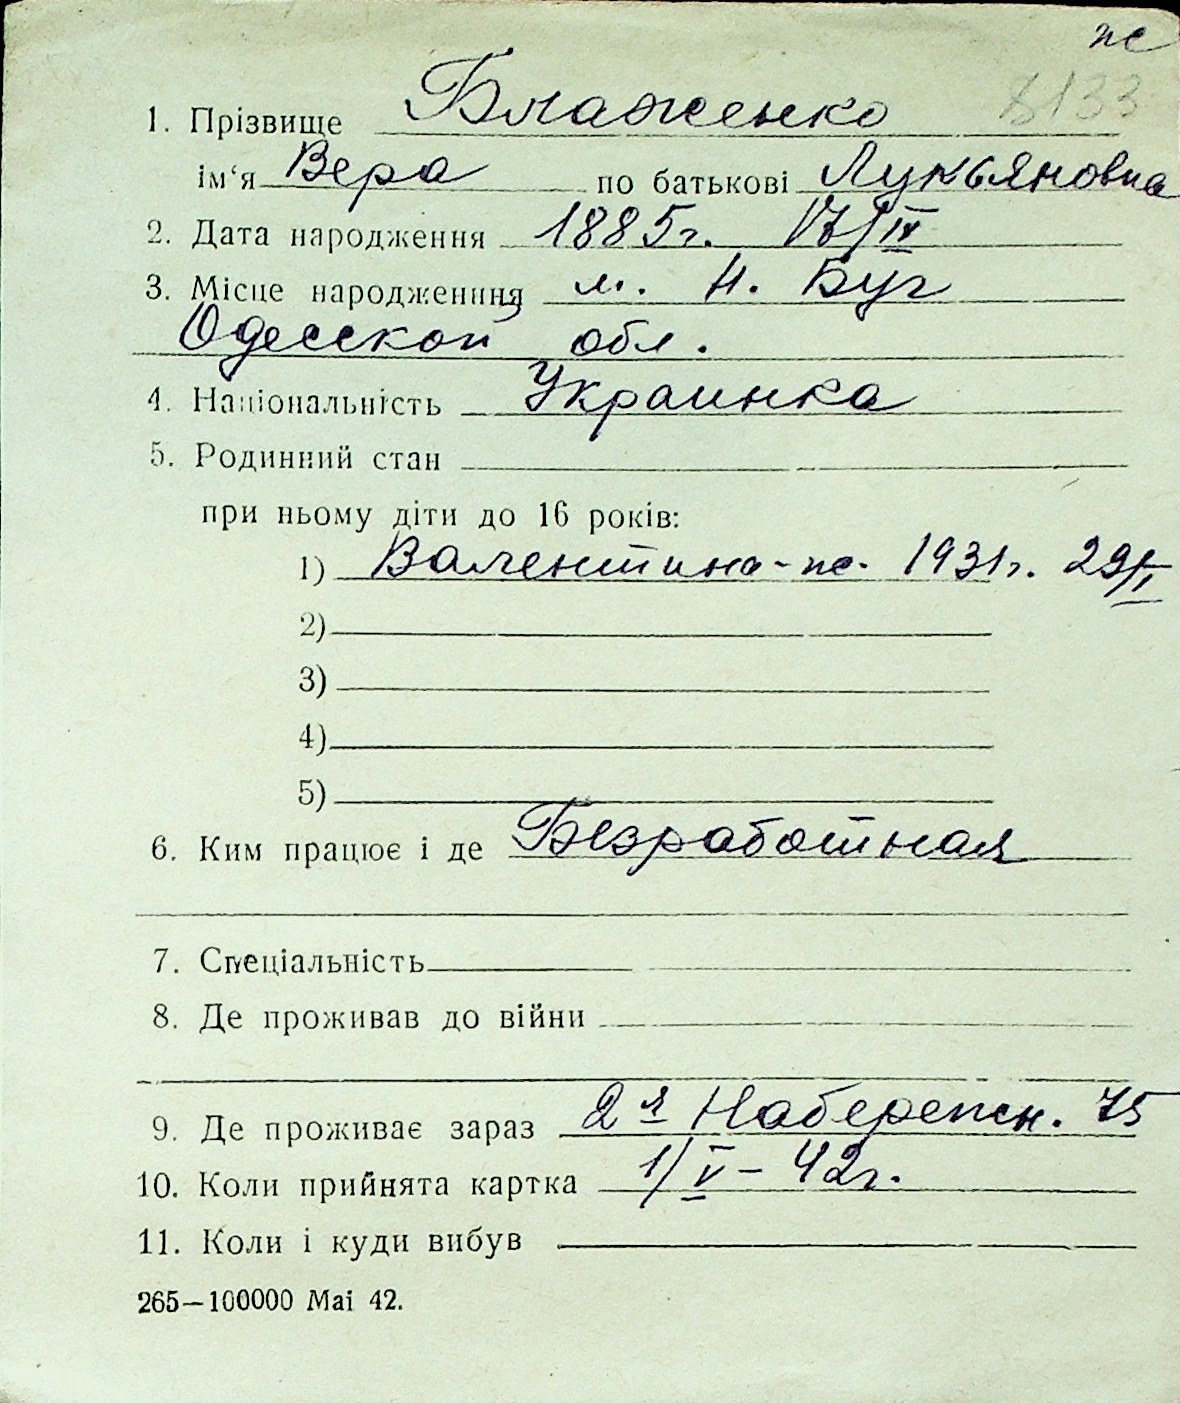 ж
8133
1. Прізвище Блаженко
ім'я Вера по батькові Лукьяновна
2. Дата народження 1885г. 17/IV
3. Місце народженння м. Н. Буг
Одесской обл.
4. Національність Украинка
5. Родинний стан
при ньому діти до 16 років:
1) Валентина - ж. 1931г. 29/I
2)
3)
4)
5)
6. Ким працює і де Безработная
7. Спеціальність
8. Де проживав до війни
9. Де проживає зараз 2я Набережн. 75
10. Коли прийнята картка 1/V - 42г.
11. Коли і куди вибув
265—100000 Маі 42.